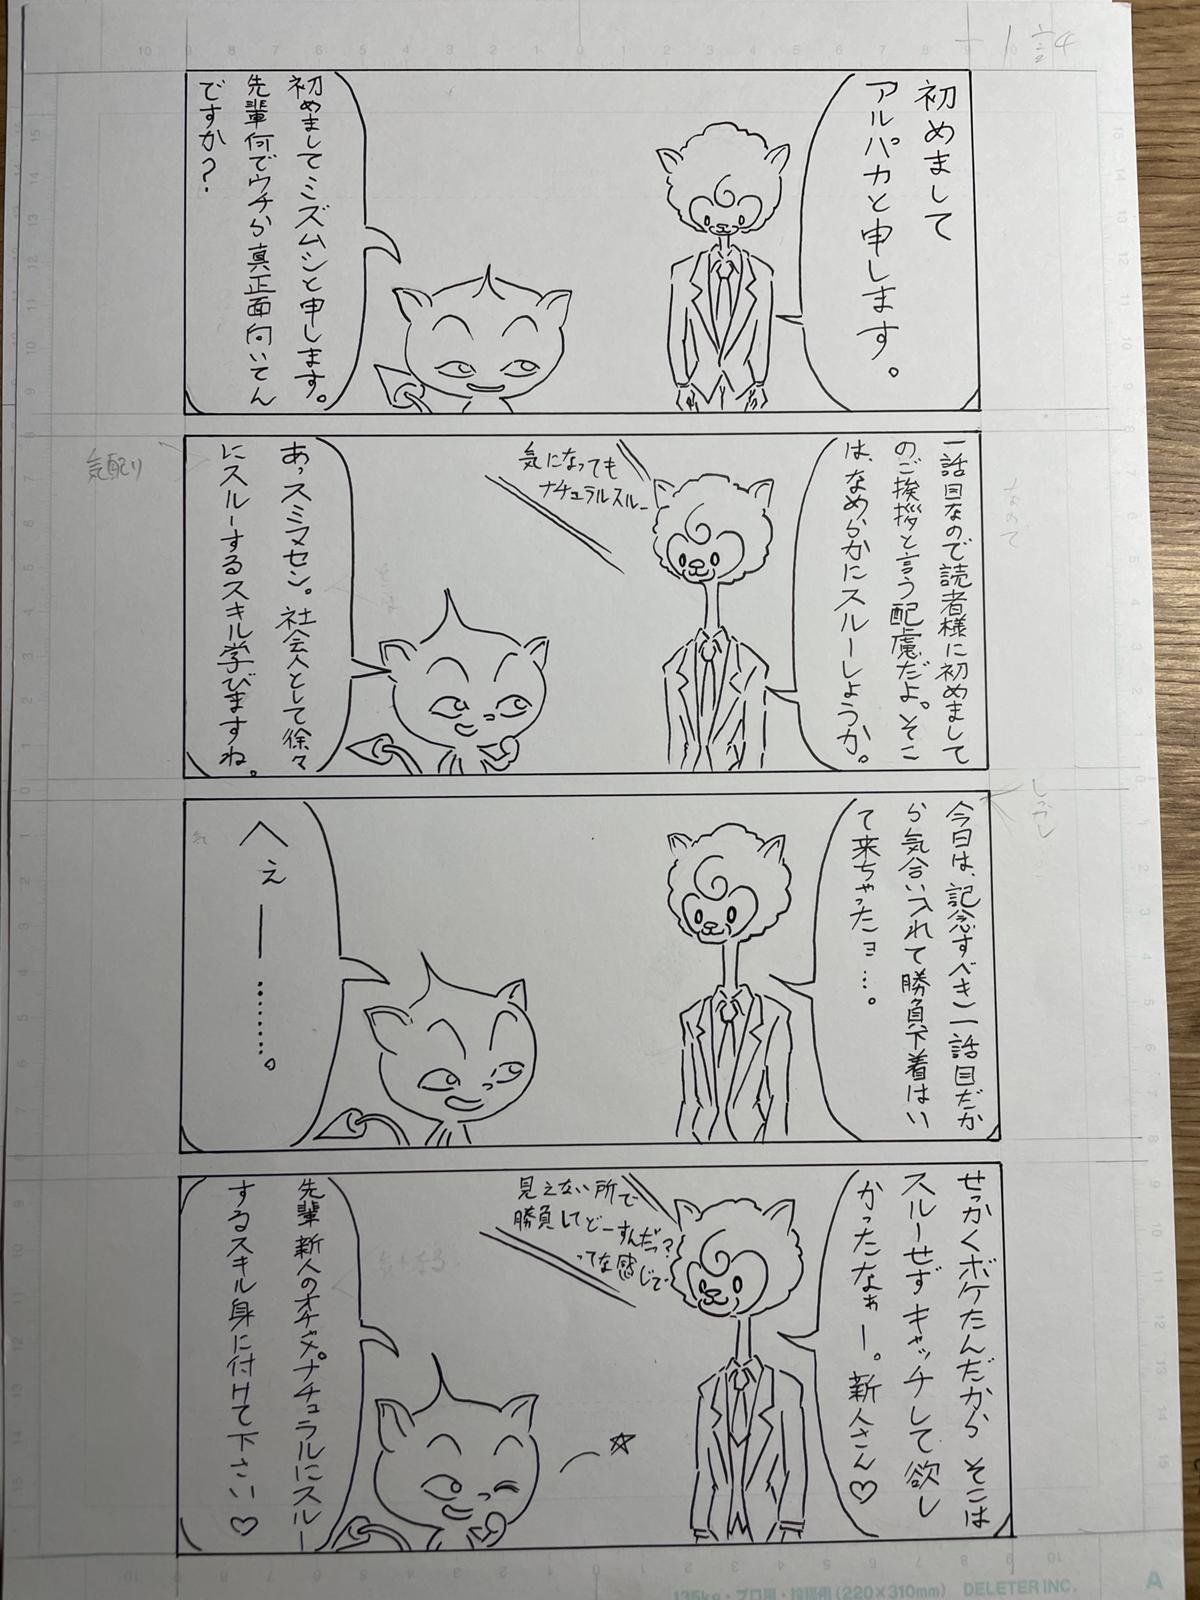 初めまして
アルパカと申します。
初めましてミズムシと申します。
先輩何でウチら真正面向いてん
ですか?
一話目なので読者様に初めまして
のご挨拶と言う配慮だよ。そこ
は、なめらかにスルーしようか。
気になっても
ナチュラルスルー
あっスミマセン。社会人として徐々
にスルーするスキル学びますね。
気配り
今日は、記念すべき一話目だか
ら気合い入れて勝負下着はい
て来ちゃったョ…。
しっかし
へぇー………。
せっかくボケたんだから そこは
スルーせずキャッチして欲し
かったなぁー。新人さん♡
見えない所で
勝負してどーすんだっ?
ってな感じで
先輩 新人のオチャメ。ナチュラルにスルー
するスキル身に付けて下さい♡
135kg・プロ用・投稿用(220×310mm) DELETER INC.
A